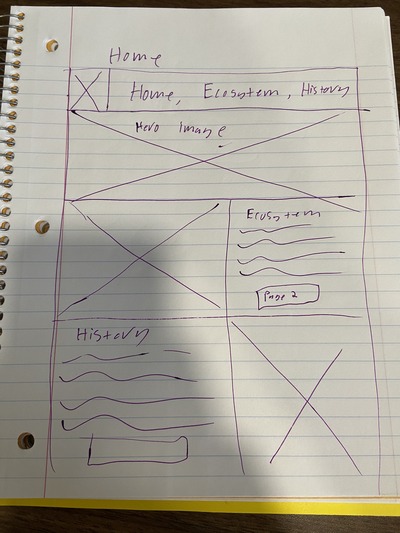 Home
Home, Ecosystem, History
Hero Image
Ecosystem
Page 2
History